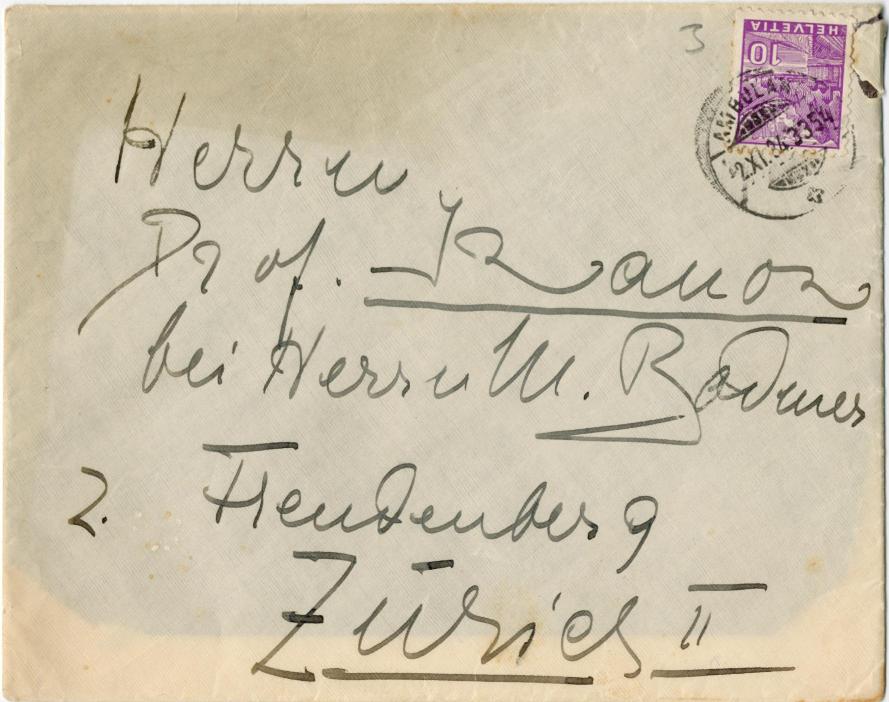 3
HELVETIA
10
AMBULANT
2.XI.34.3354
Herrn
Prof.
bei Herrn M. Bodmer
2. Freudenberg
Zürich II